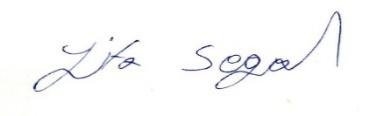 Zita Segal